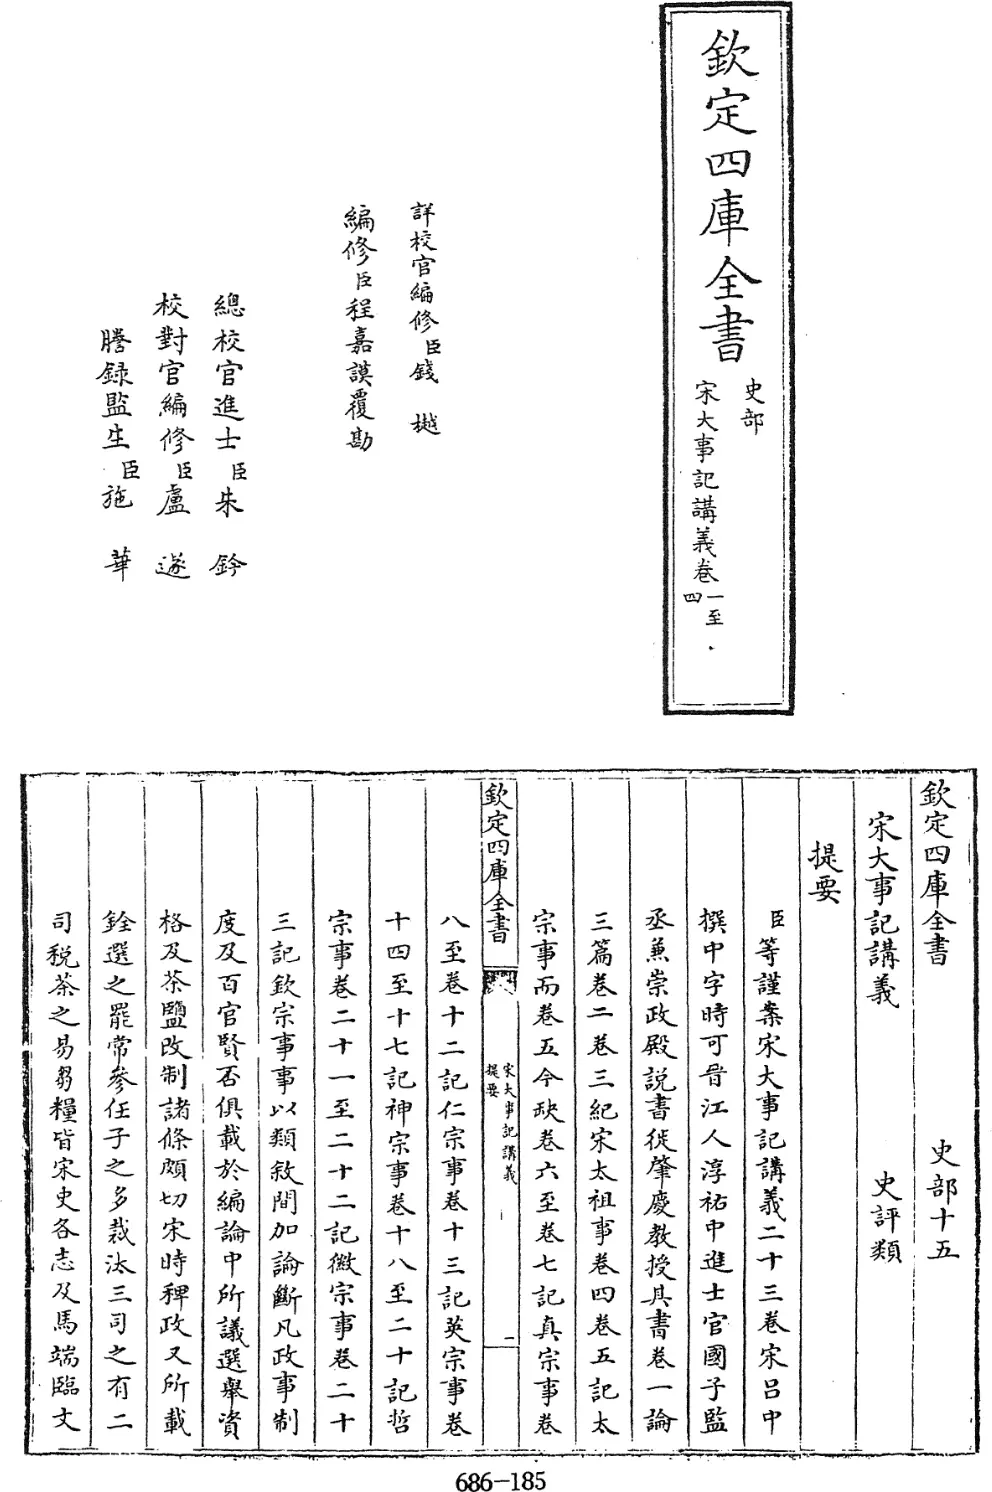 欽定四庫全書
史部
宋大事記講義卷一至四
詳校官編修臣錢樾
編修臣程嘉謨覆勘
總校官進士臣朱鈐
校對官編修臣盧遂
謄録監生臣施華
欽定四庫全書 史部十五
宋大事記講義 史評類
提要
臣等謹案宋大事記講義二十三卷宋呂中
撰中字時可晉江人淳祐中進士官國子監
丞兼崇政殿說書徙肇慶教授其書卷一論
三篇卷二卷三紀宋太祖事卷四卷五記太
宗事而卷五今缺卷六至卷七記真宗事卷
欽定四庫全書 宋大事記講義 提要 一
八至卷十二記仁宗事卷十三記英宗事卷
十四至十七記神宗事卷十八至二十記哲
宗事卷二十一至二十二記徽宗事卷二十
三記欽宗事事以類敘間加論斷凡政事制
度及百官賢否俱載於編論中所議選舉資
格及茶鹽改制諸條頗切宋時稗政又所載
銓選之罷常參任子之多裁汰三司之有二
司税茶之易芻糧皆宋史各志及馬端臨文
686-185